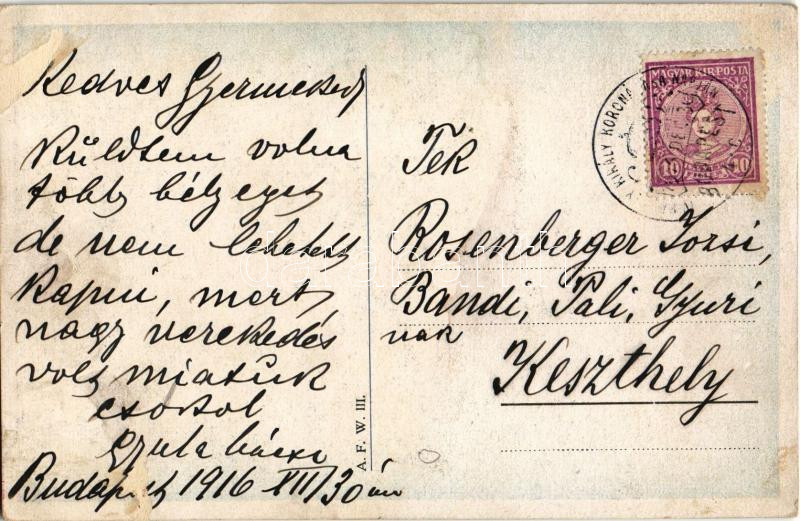 Kedves Gyermekek
Küldtem volna
több bélyeget
de nem lehetett
kapni, mert
nagy verekedés
volt miatuk
csokol
Gyula bácsi
Budapest 1916 XII/30 án
A. F. W. III.
MAGYAR KIR. POSTA
10 10
KIRÁLY KORONÁZ
BUDAPEST
Tek
Rosenberger Jozsi,
Bandi, Pali, Gyuri
nak
Keszthely